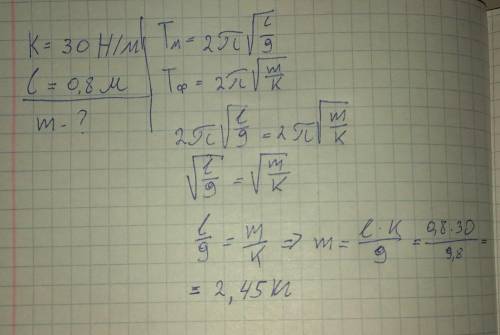 K = 30 Н/м
l = 0,8 м
m - ?
Tм = 2π√(l/g)
Tф = 2π√(m/K)
2π√(l/g) = 2π√(m/K)
√(l/g) = √(m/K)
l/g = m/K => m = l·K/g = 0,8·30/9,8 =
= 2,45 кг